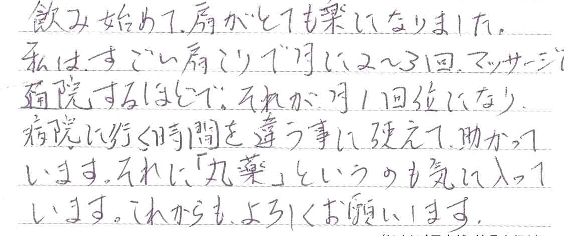 飲み始めて、肩がとても楽になりました。
私は、すごい肩こりで月に2〜3回、マッサージで
通院するほどで、それが、月1回位になり、
病院に行く時間を違う事に使えて、助かって
います。それに、「丸薬」というのも気に入って
います。これからも、よろしくお願いします。